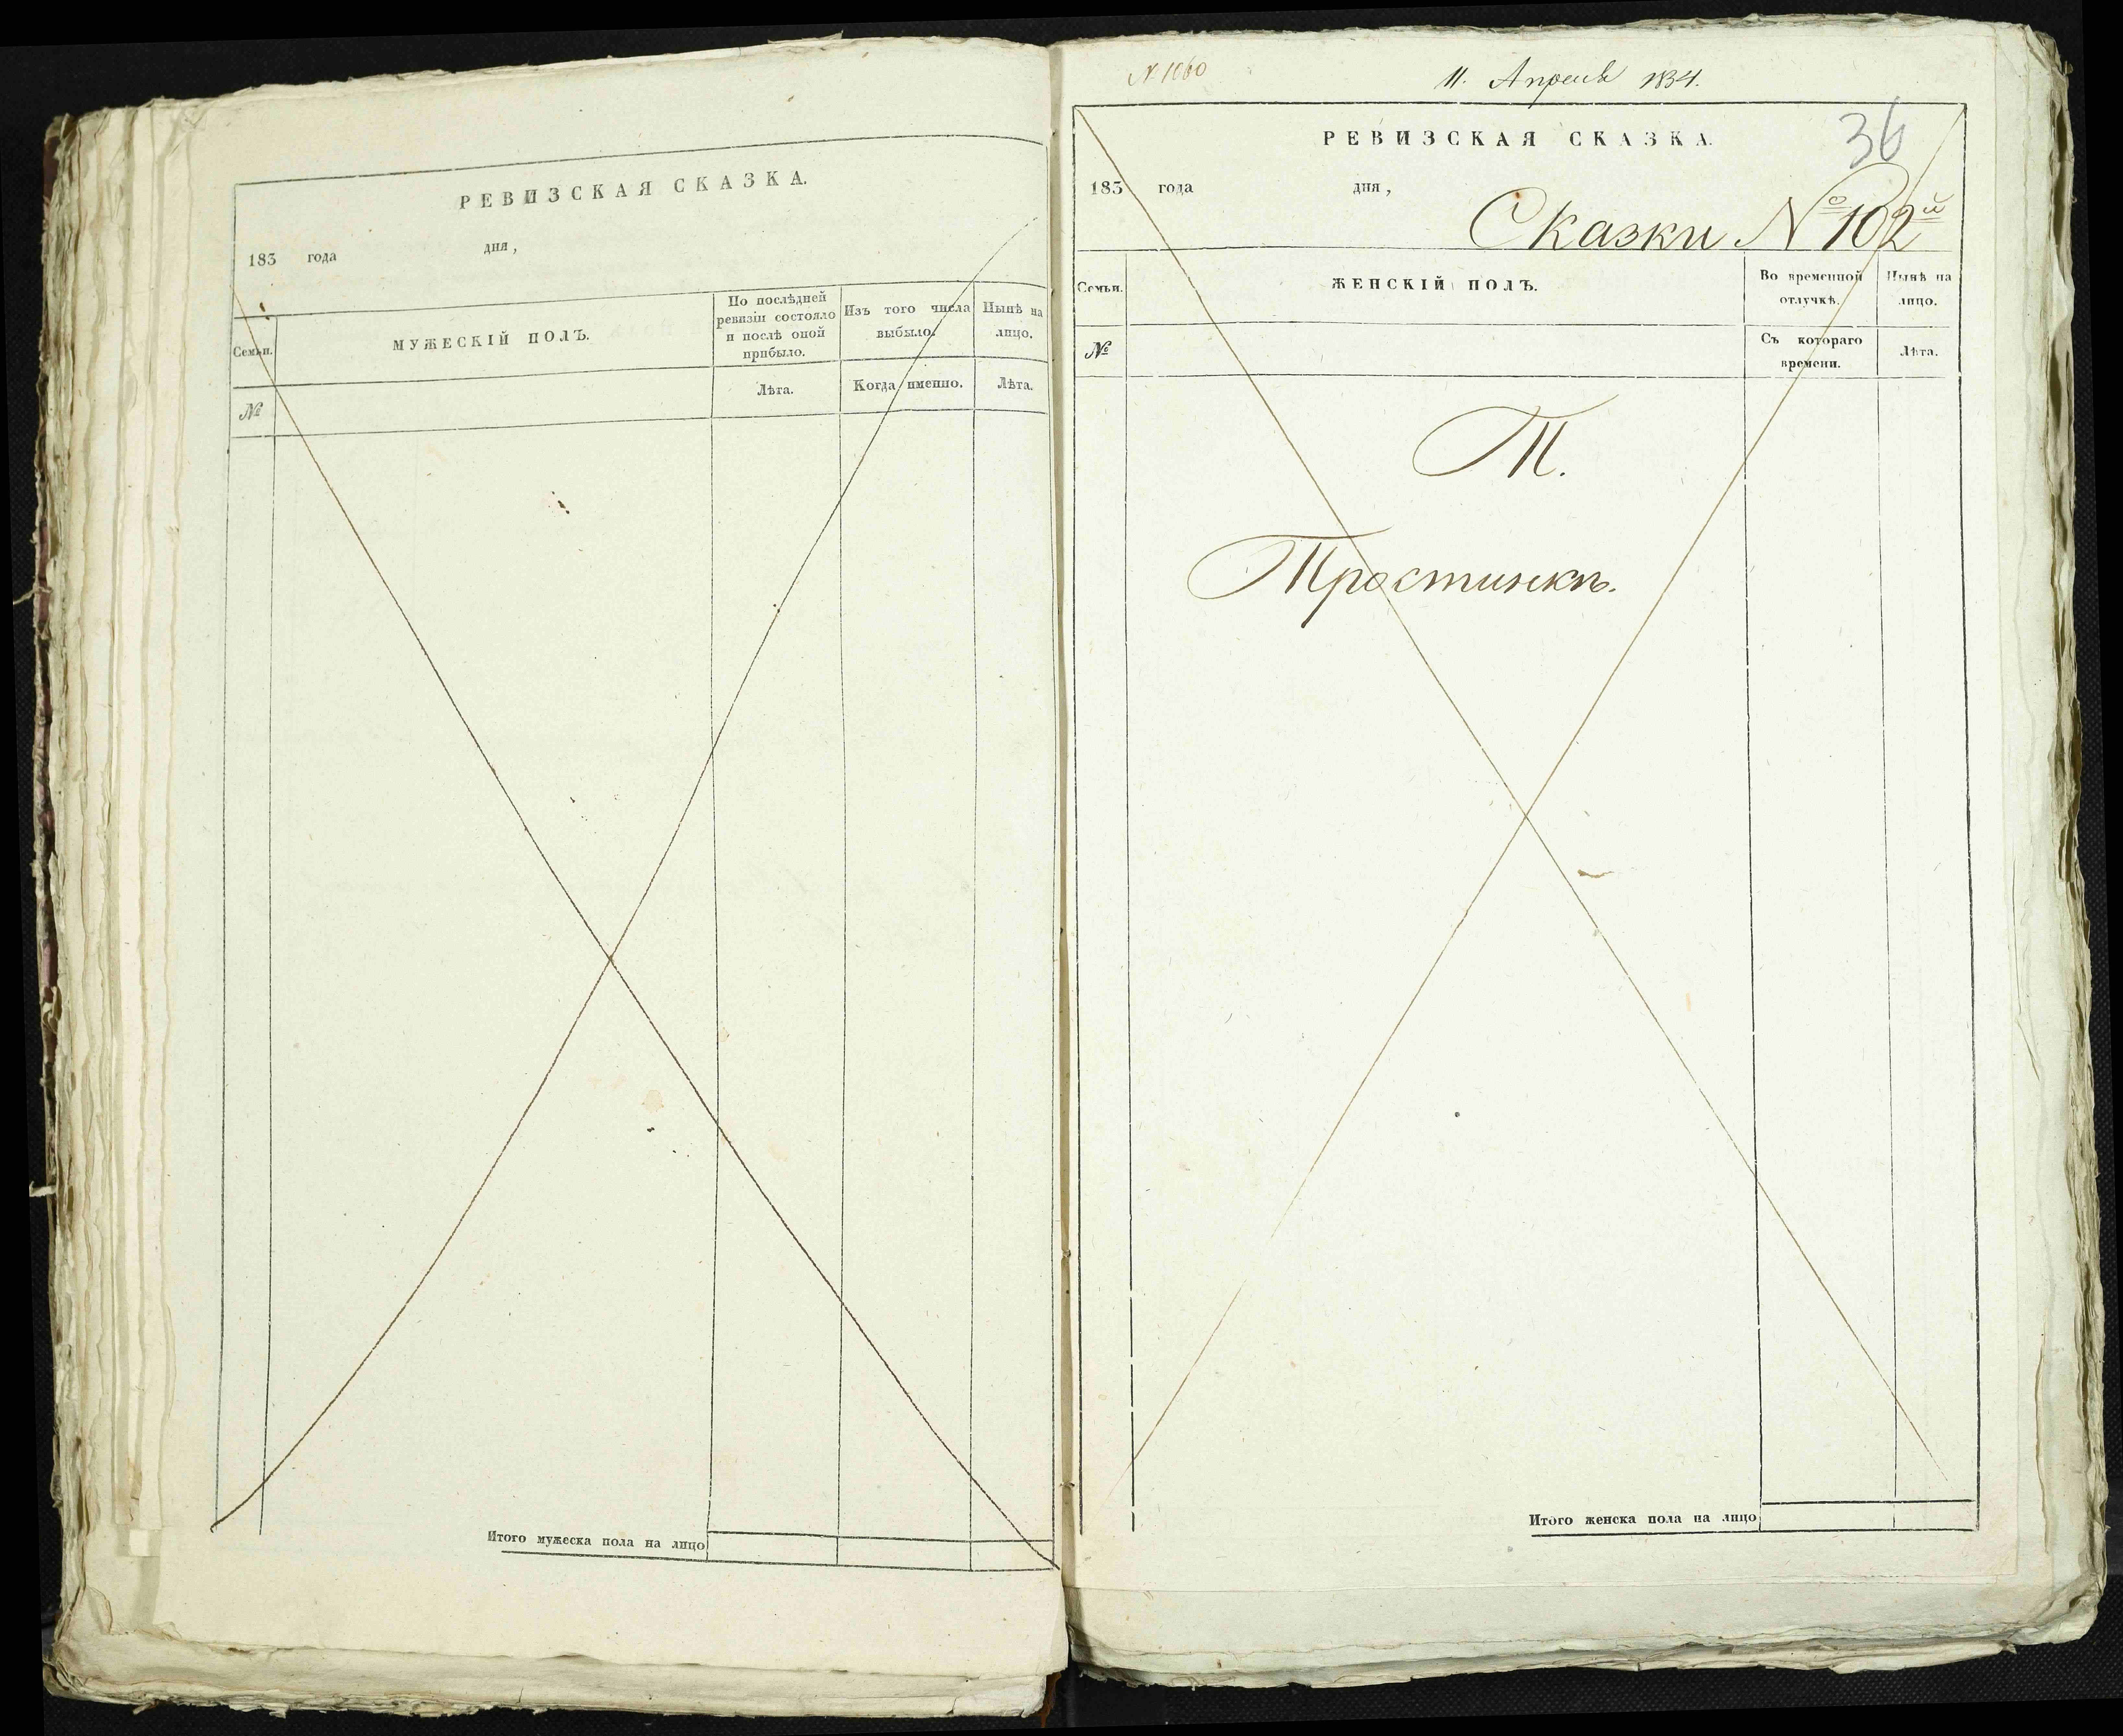 РЕВИЗСКАЯ СКАЗКА.
183 года дня,
Семьи.
МУЖЕСКІЙ ПОЛЪ.
По послѣдней
ревизіи состояло
и послѣ оной
прибыло.
Изъ того числа
выбыло.
Нынѣ на
лицо.
№
Лѣта.
Когда именно.
Лѣта.
Итого мужеска пола на лицо
N 1060
11. Апреля 1834.
36
РЕВИЗСКАЯ СКАЗКА.
183 года дня,
Сказки № 102й
Семьи.
ЖЕНСКІЙ ПОЛЪ.
Во временной
отлучкѣ.
Нынѣ на
лицо.
№
Съ котораго
времени.
Лѣта.
Т.
Тростинкъ.
Итого женска пола на лицо